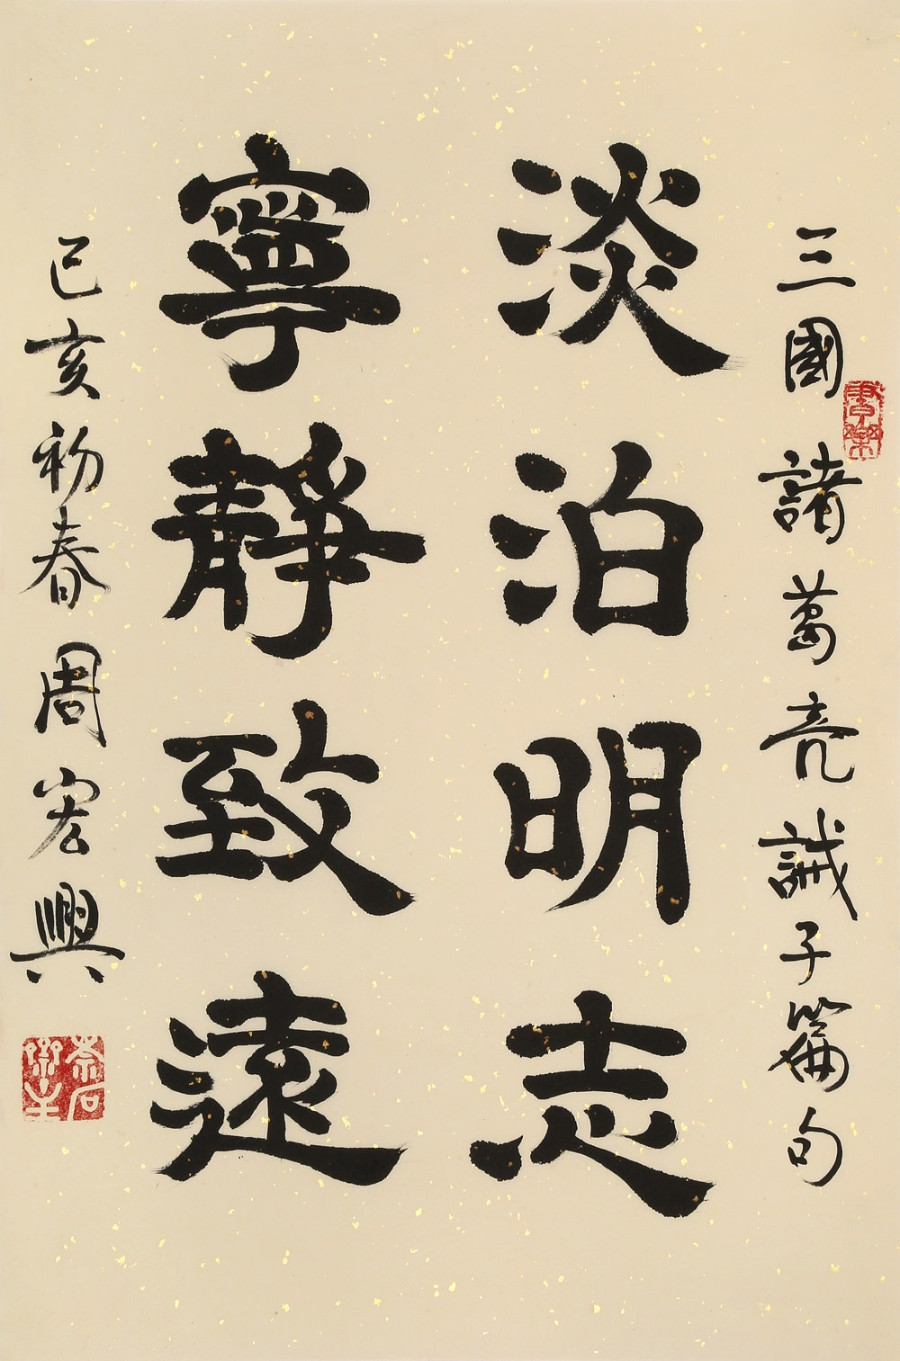 三國諸葛亮誡子篇句
書樂
淡泊明志
寧靜致遠
己亥初春周宏興
奈石
樂主